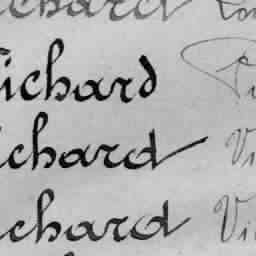 ichard
ichard
ichard Vi
ichard Vi